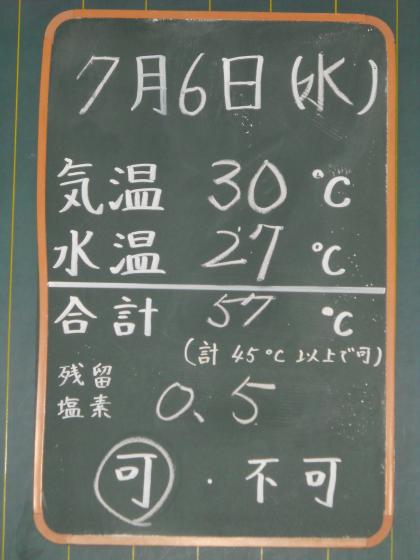 7月6日(水)
気温 30 ℃
水温 27 ℃
合計 57 ℃
(計 45℃ 以上で可)
残留
塩素 0.5
可・不可